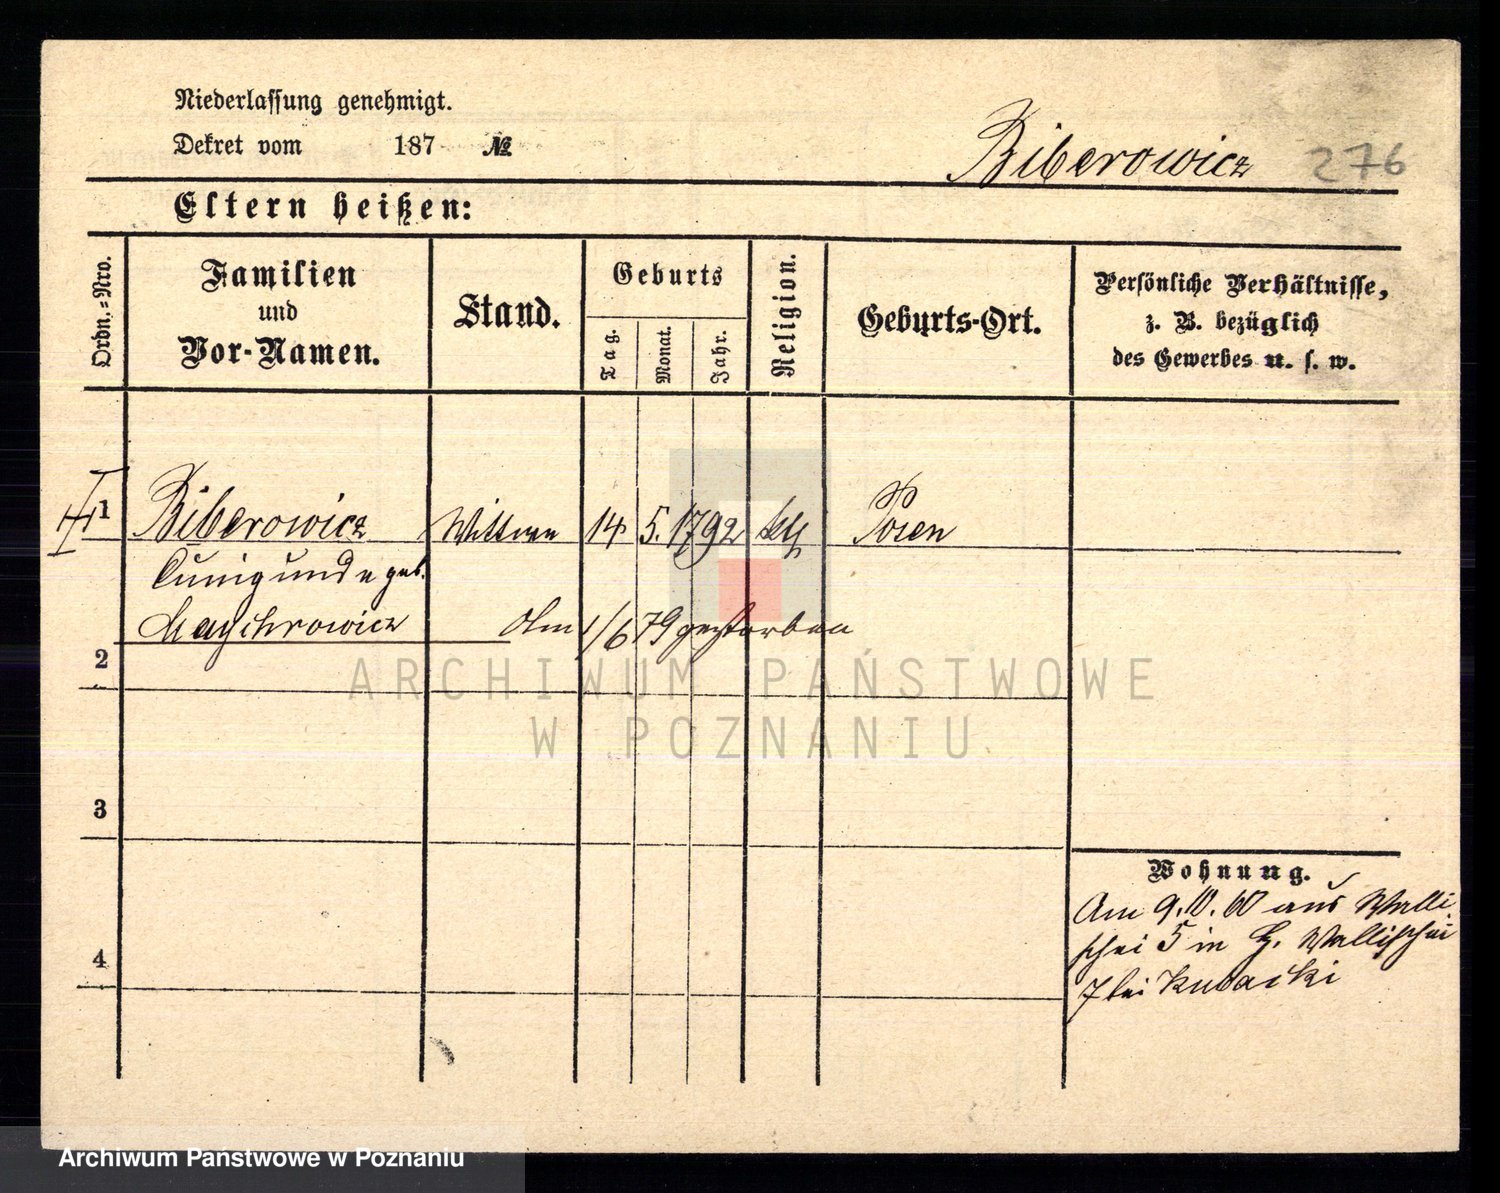 Niederlassung genehmigt.
Dekret vom 187 №
Biberowicz 276
Eltern heißen:
Ordn.-Nro.
Familien
und
Vor-Namen.
Stand.
Geburts
Tag.
Monat.
Jahr.
Religion.
Geburts-Ort.
Persönliche Verhältnisse,
z. B. bezüglich
des Gewerbes u. s. w.
1 Biberowicz Wittwe 14 5. 1792 kth Posen
Cunigunde geb.
Maychrowicz Am 1/6 79 gestorben
2
3
4
Wohnung.
Am 9.10.60 aus Walli
schei 5 in Wallischei
7 bei
ARCHIWUM PAŃSTWOWE
W POZNANIU
Archiwum Państwowe w Poznaniu